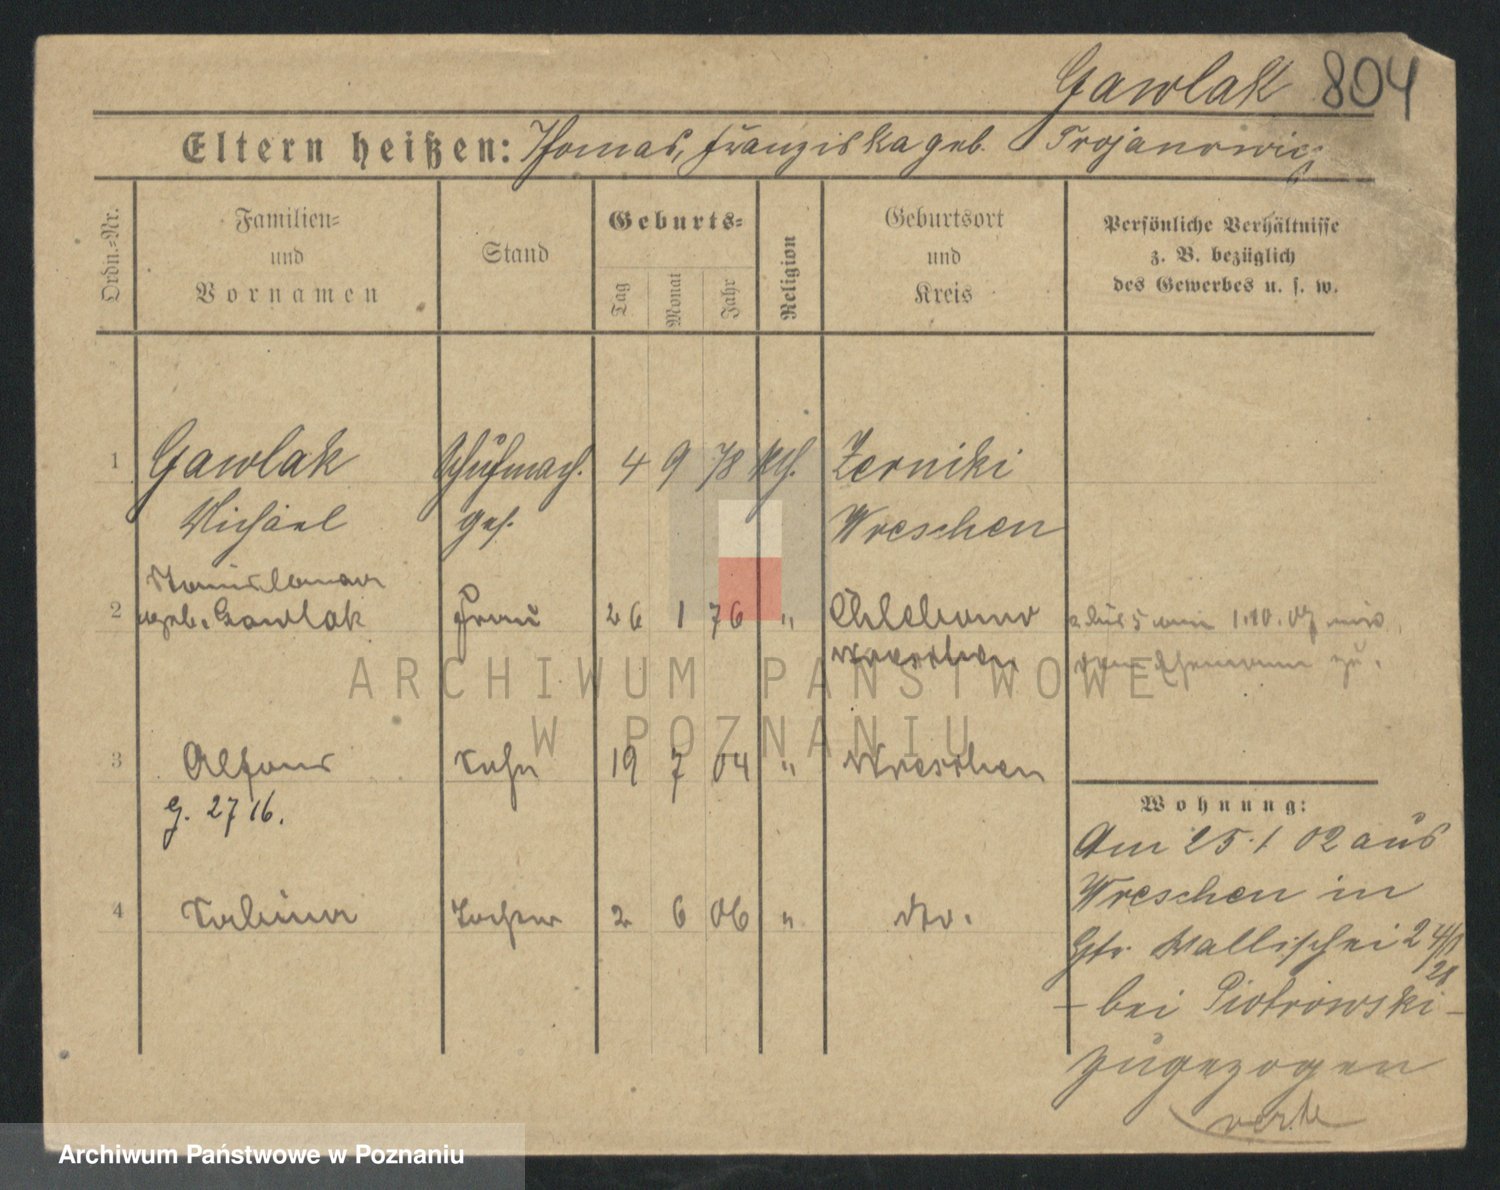 Gawlak 804
Eltern heißen: Thomas, Franziska geb. Trojanowicz
Ordn.=Nr.
Familien=
und
Vornamen
Stand
Geburts=
Tag
Monat
Jahr
Religion
Geburtsort
und
Kreis
Persönliche Verhältnisse
z. B. bezüglich
des Gewerbes u. s. w.
1 Gawlak Schuhmach. 4 9 78 kth. Zerniki
Michael ges. Wreschen
Stanislawa
2 geb. Gawlak Frau 26 1 76 " Chlebowo 1.10.07
Wreschen dem Ehemann zu.
3 Alfons Sohn 19 7 04 " Wreschen
g. 27 16.
4 Tochter 2 6 06 " do.
Wohnung:
Am 25.1 02 aus
Wreschen in
Wallischei 2 4/1
28
– bei Piotrowski –
zugezogen
verte
ARCHIWUM PAŃSTWOWE
W POZNANIU
Archiwum Państwowe w Poznaniu